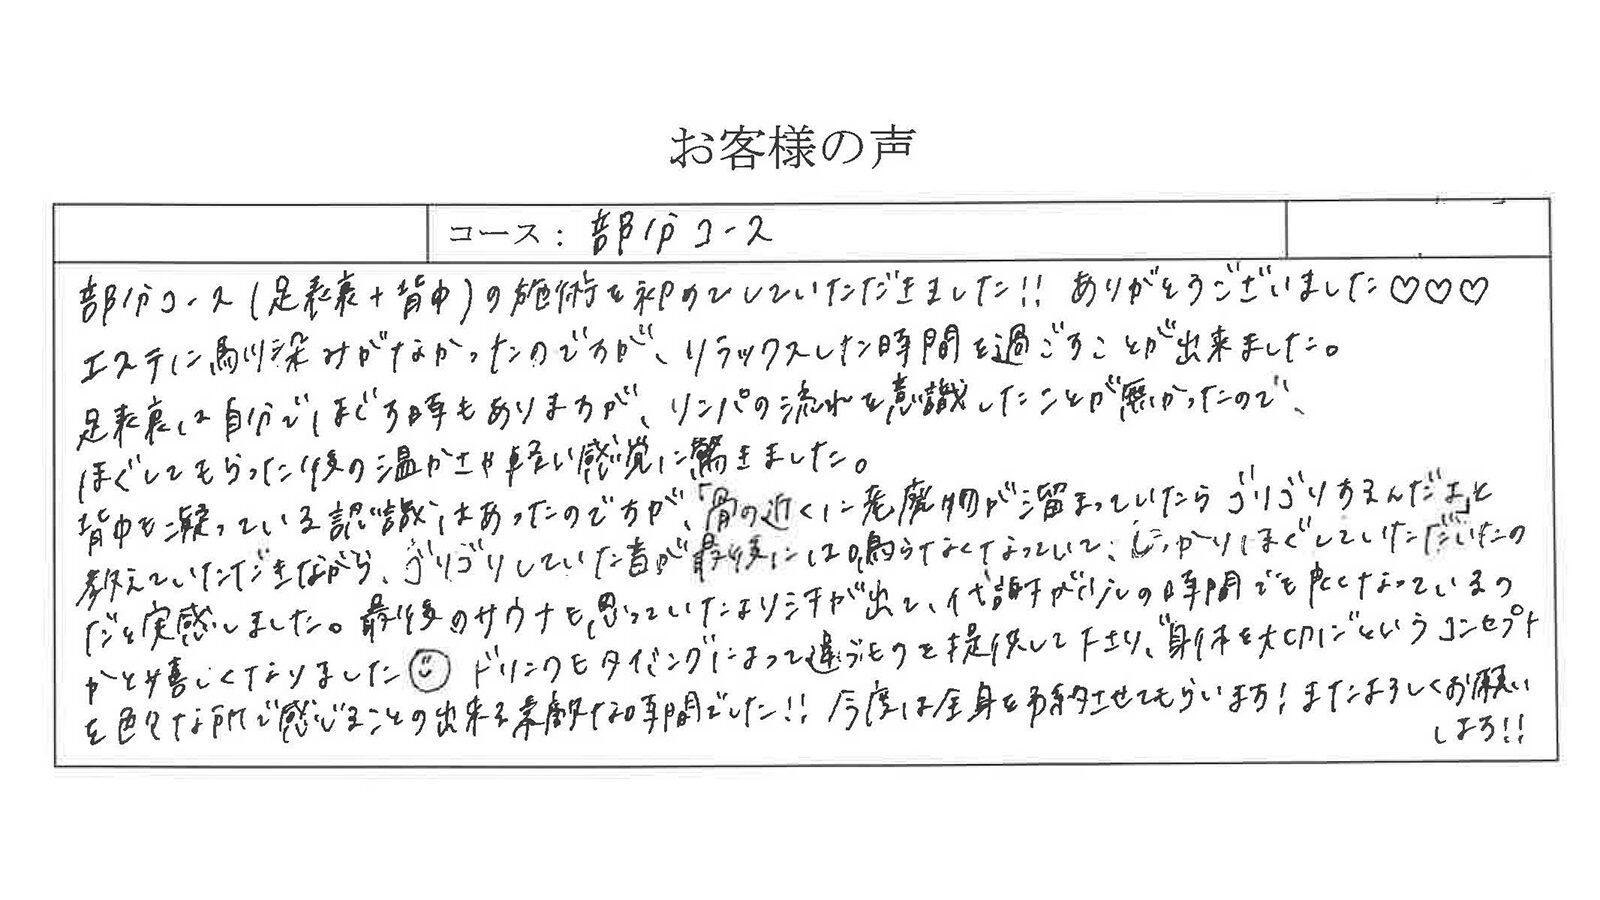 お客様の声
コース：部分コース
部分コース(足表裏+背中)の施術を初めてしていただきました!! ありがとうございました♡♡♡
エステに馴染みがなかったのですが、リラックスした時間を過ごすことが出来ました。
足表裏は自分でほぐす時もありますが、リンパの流れを意識したことが無かったので、
ほぐしてもらった後の温かさや軽い感覚に驚きました。
背中も凝っている認識はあったのですが、「骨の近くに老廃物が溜まっていたらゴリゴリするんだよ」と
教えていただきながら、ゴリゴリしていた音が最後には鳴らなくなっていて、しっかりほぐしていただいたの
だと実感しました。最後のサウナも思っていたより汗が出て、代謝が少しの時間でも良くなっているの
かと嬉しくなりました☺ ドリンクもタイミングによって違うものを提供して下さり、"身体を大切に"というコンセプト
を色々な所で感じることの出来る素敵な時間でした!! 今度は全身を予約させてもらいます! またよろしくお願い
します!!